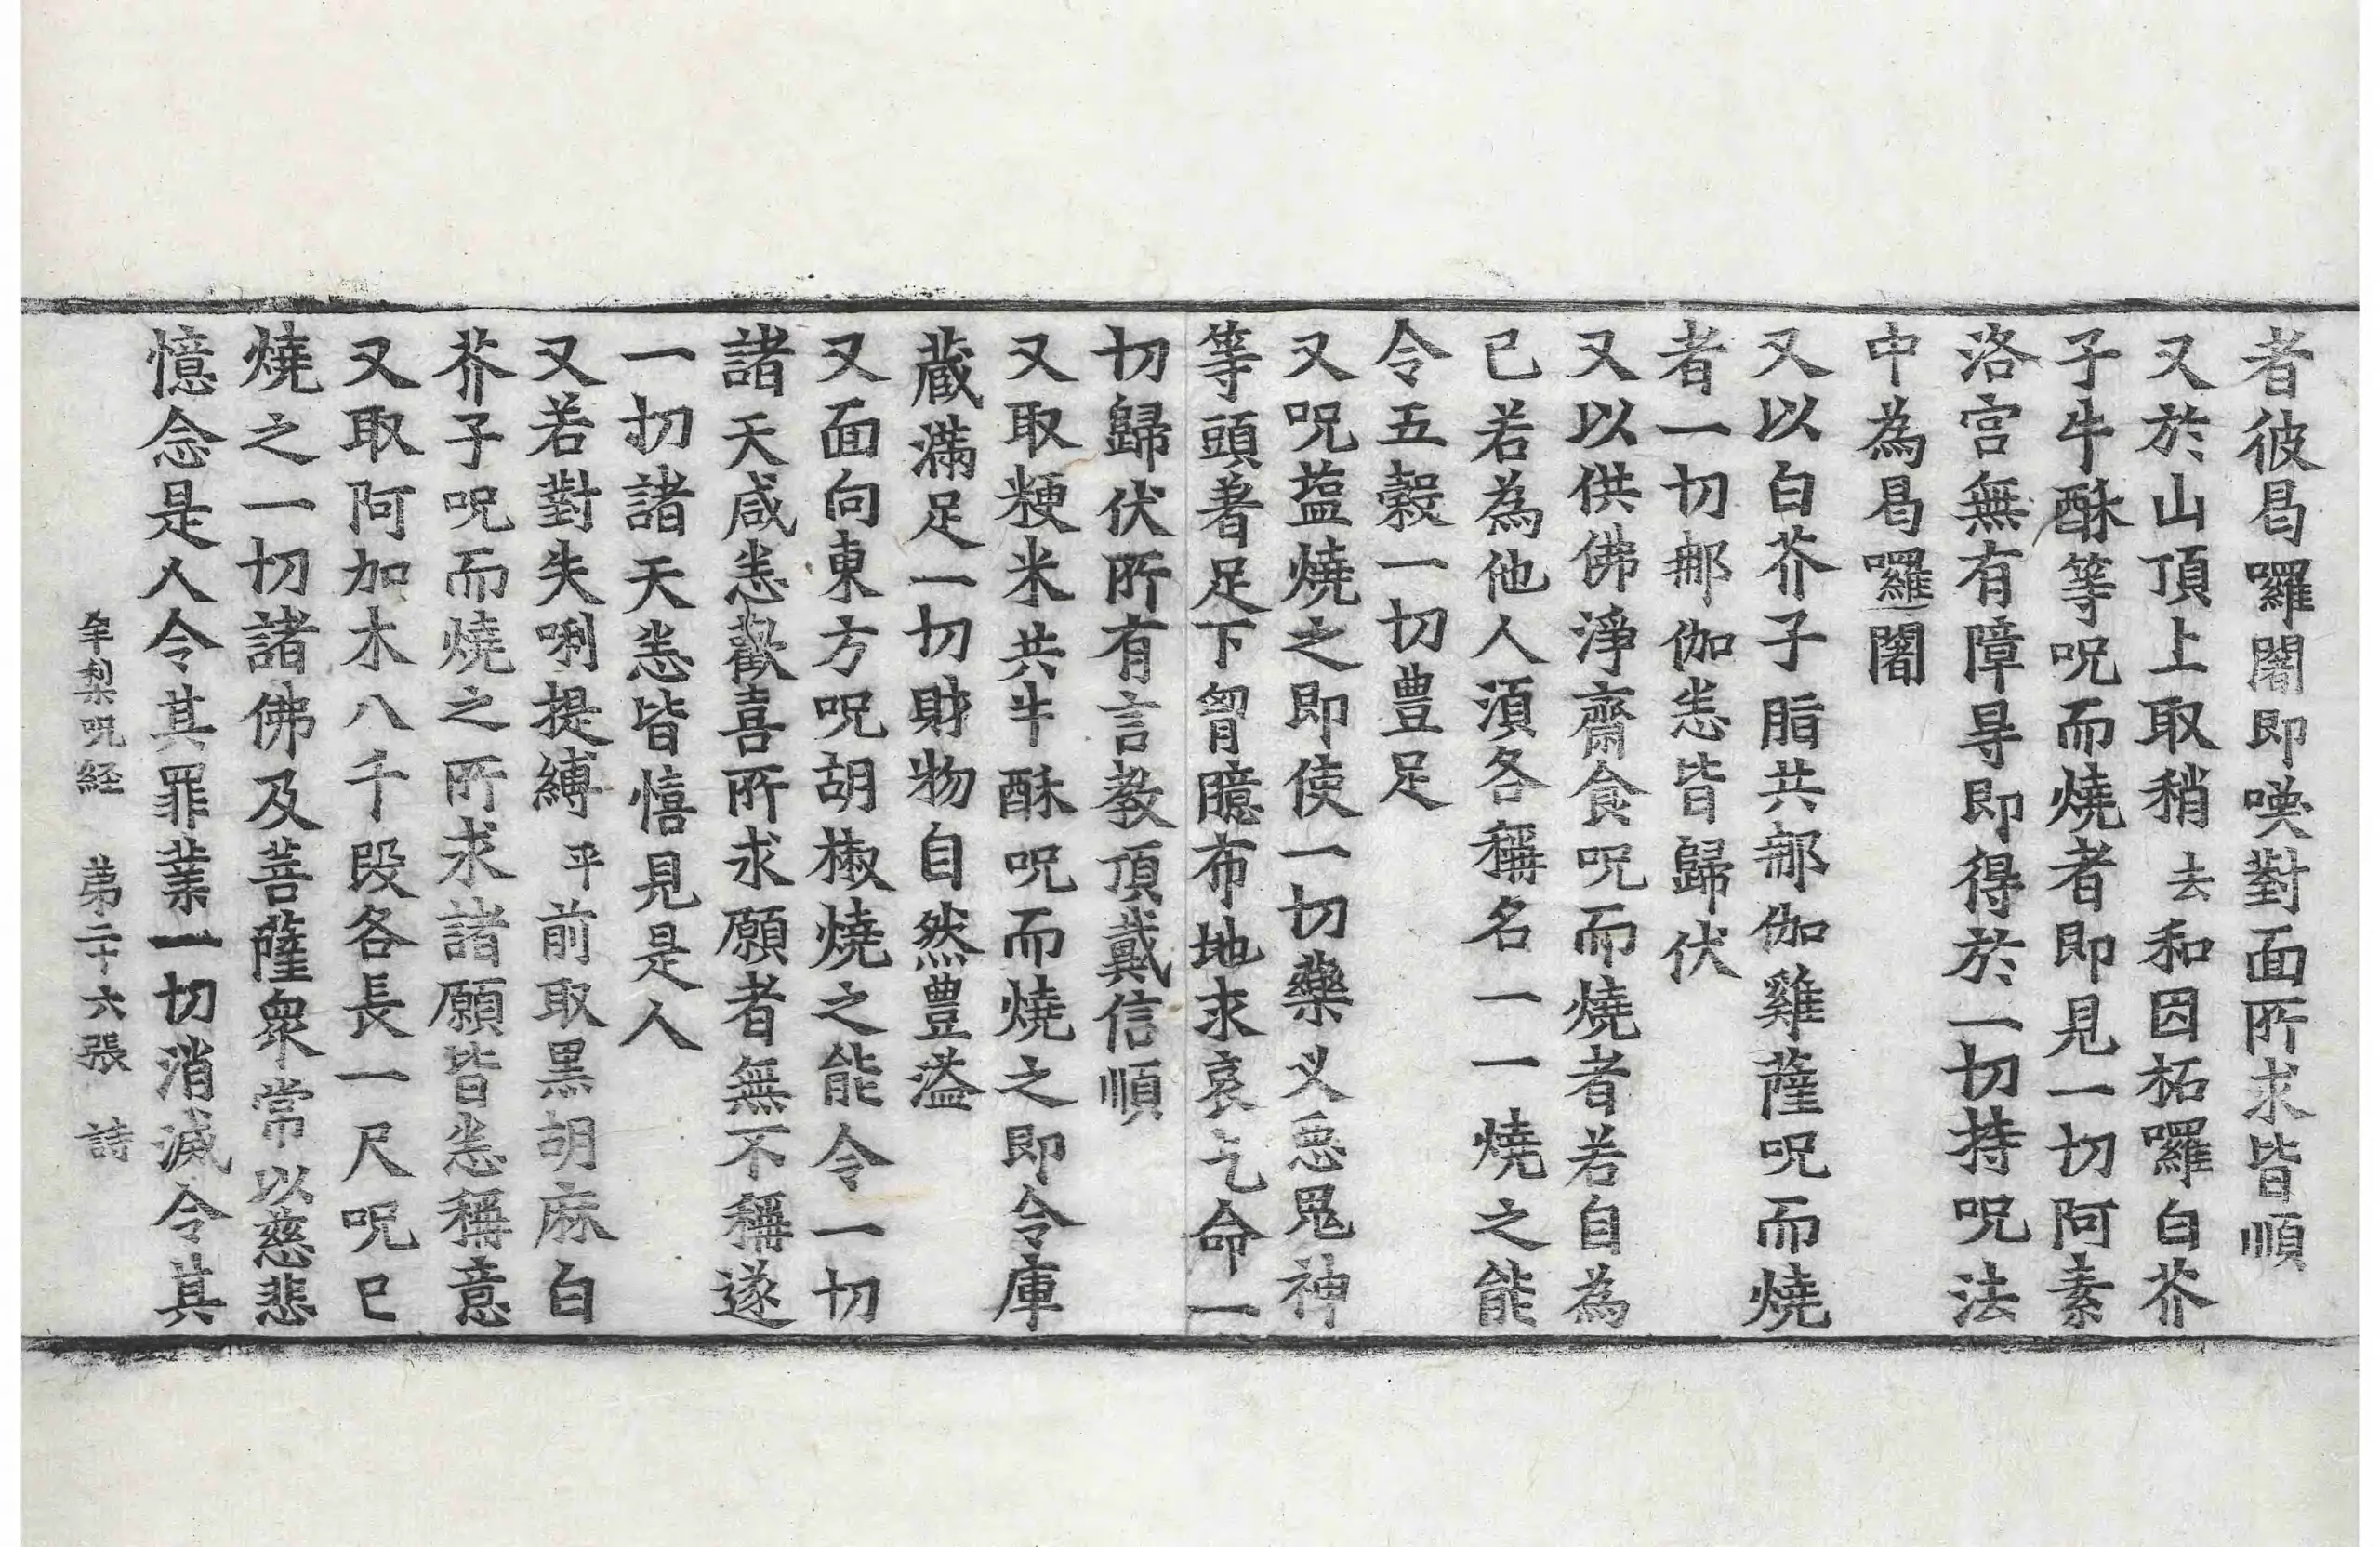 者彼曷囉闍即喚對面所求皆順
又於山頂上取稍去和因柘囉白芥
子牛酥等呪而燒者即見一切阿素
洛宫無有障㝵即得於一切持呪法
中為曷囉闍
又以白芥子脂共那伽雞薩呪而燒
者一切那伽悉皆歸伏
又以供佛淨齋食呪而燒者若自為
已若為他人須各稱名一一燒之能
令五穀一切豊足
又呪塩燒之即使一切藥义惡鬼神
等頭著足下胷臆布地求哀乞命一
切歸伏所有言教頂戴信順
又取粳米共牛酥呪而燒之即令庫
蔵滿足一切財物自然豊溢
又面向東方呪胡椒燒之能令一切
諸天咸悉歡喜所求願者無不稱遂
一切諸天悉皆憘見是人
又若對失唎提縛平前取黒胡麻白
芥子呪而燒之所求諸願皆悉稱意
又取阿加木八千段各長一尺呪已
燒之一切諸佛及菩薩衆常以慈悲
憶念是人令其罪業一切消滅令其
牟梨呪経 苐二十六張 詩